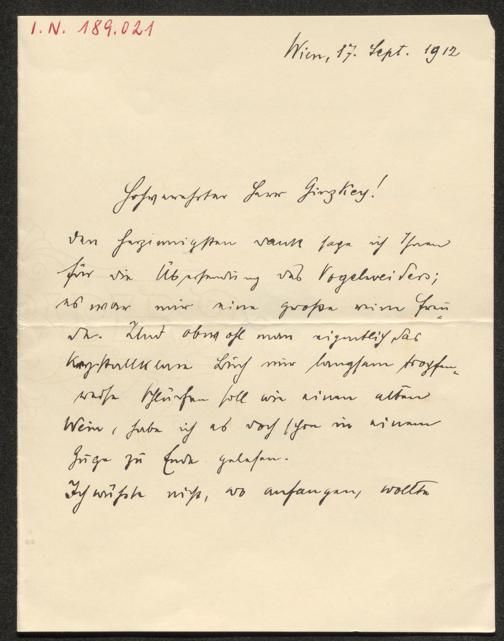 I.N. 189.021
Wien, 17. Sept. 1912
Hochverehrter Herr Ginzkey!
den herzinnigsten Dank sage ich Ihnen
für die Übersendung des Vogelweiders;
es war mir eine große reine Freu
de. Und obwohl man eigentlich das
krystallklare Buch nur langsam tropfen-
weise schlürfen soll wie einen alten
Wein, habe ich es doch schon in einem
Zuge zu Ende gelesen.
Ich wüßte nicht, wo anfangen, wollte